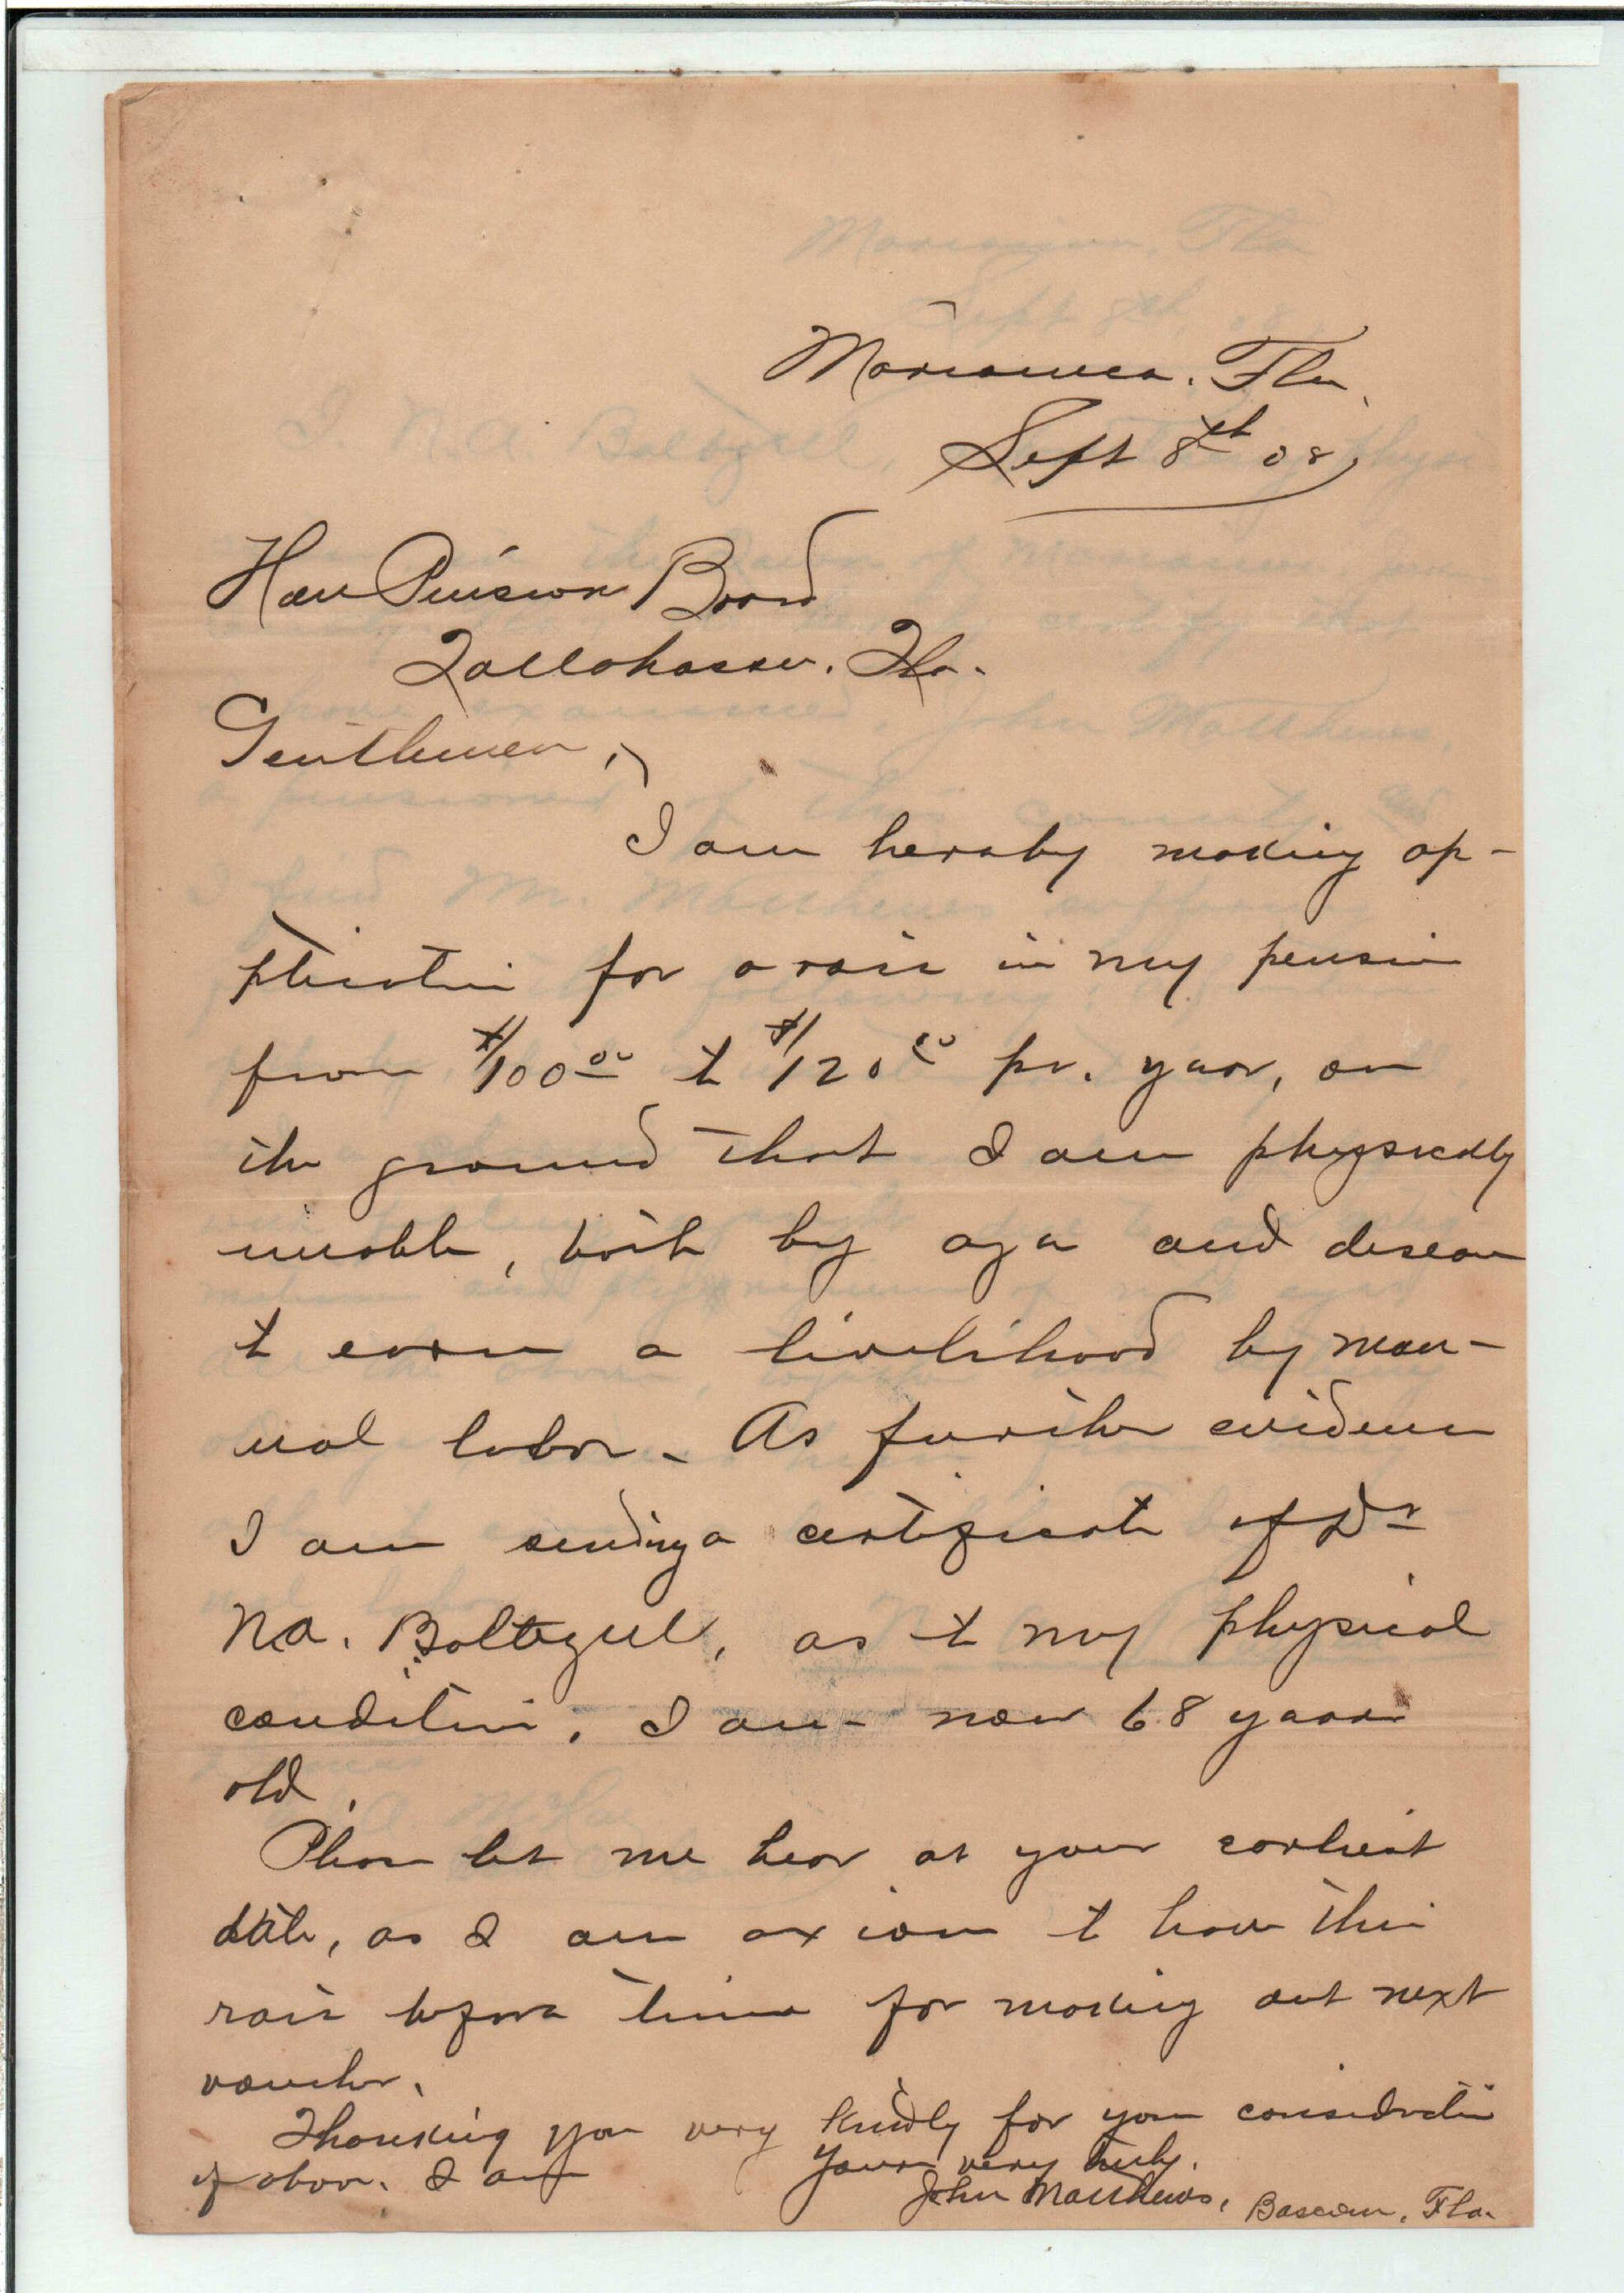 Marianna, Fla.
Sept 8th 08,
Hon Pension Board
Tallahassee, Fla.
Gentlemen,
I am hereby making ap-
plication for a rais in my pension
from $100.00 to $120.00 pr. year, on
the ground that I am physically
unable, both by age and disease
to earn a livelihood by man-
ual labor. As further evidence
I am sending a certificate of Dr
N.A. Baltzell, as to my physical
condition. I am now 68 years
old.
Please let me hear at your earliest
date, as I am axious to have this
rais before time for making out next
voucher.
Thanking you very kindly for your consideration
of above. I am Yours very truly.
John Matthews, Bascom, Fla.